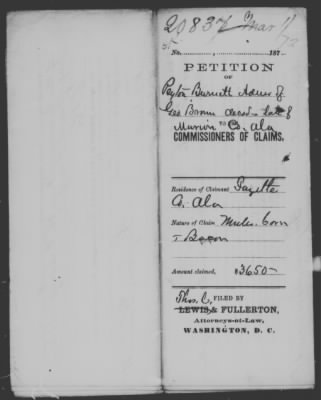 20837 Mar 1/72
No. , 187
PETITION
OF
Peyton Burnett Admr of
Geo Bonin decsd late of
TO
Marion Co, Ala
COMMISSIONERS OF CLAIMS.
Residence of Claimant Fayette
Co, Ala
Nature of Claim Mules, Corn
+ Bacon
Amount claimed, $3650-
Thos. C, FILED BY
LEWIS & FULLERTON,
Attorneys-at-Law,
WASHINGTON, D. C.